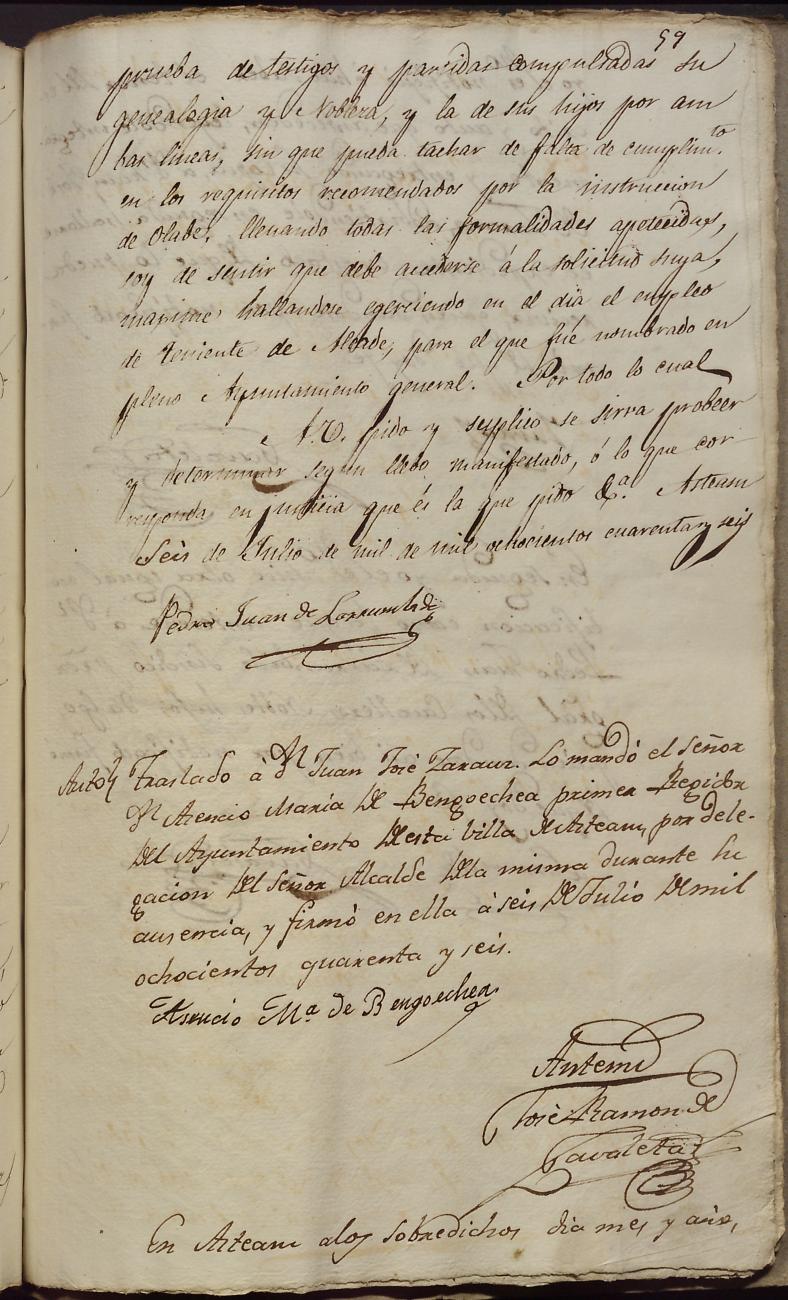 59
prueba de testigos y partidas compulsadas su
genealogia y Nobleza, y la de sus hijos por am
bas lineas, sin que pueda tachar de falta de cumplim.to
en los requisitos recomendados por la instruccion
de Olabe, llenando todas las formalidades apetecidas,
soy de sentir que debe accederse á la solicitud suya,
maxime hallandose egerciendo en el dia el empleo
de teniente de Alcade, para el que fué nombrado en
pleno Ayuntamiento general. Por todo lo cual
A V. pido y suplico se sirva probeer
y determinar segun llebo manifestado, ó lo que cor
responda en justicia que és la que pido &.a Asteasu
Seis de Julio de mil de mil ochocientos cuarenta y seis
Pedro Juan de Larrumbide
Auto Traslado à Dn Juan José Zarauz. Lo mandó el señor
Dn Asencio Maria de Bengoechea primer Regidor
del Ayuntamiento de esta Villa de Asteasu, por dele-
gacion del señor Alcalde de la misma durante su
ausencia, y firmó en ella à seis de Julio de mil
ochocientos quarenta y seis.
Asencio Ma de Bengoechea
Antemi
José Ramon de
Zavaleta
En Asteasu a los sobredichos dia mes y año,